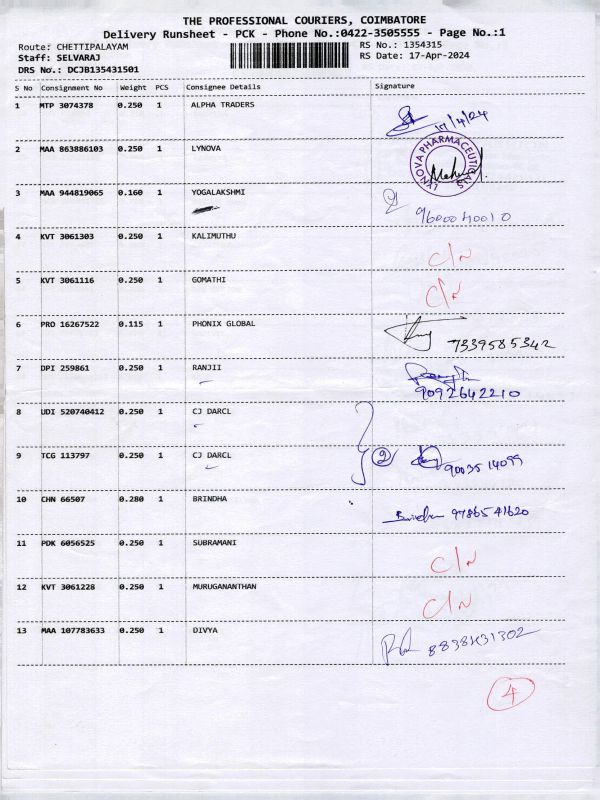 THE PROFESSIONAL COURIERS, COIMBATORE
Delivery Runsheet - PCK - Phone No.:0422-3505555 - Page No.:1
Route: CHETTIPALAYAM RS No.: 1354315
Staff: SELVARAJ RS Date: 17-Apr-2024
DRS No.: DCJB135431501
S No Consignment No Weight PCS Consignee Details Signature
1 MTP 3074378 0.250 1 ALPHA TRADERS
17/4/24
2 MAA 863886103 0.250 1 LYNOVA
LYNOVA PHARMACEUTICALS
3 MAA 944819065 0.160 1 YOGALAKSHMI
9600040010
4 KVT 3061303 0.250 1 KALIMUTHU
C/N
5 KVT 3061116 0.250 1 GOMATHI
C/N
6 PRO 16267522 0.115 1 PHONIX GLOBAL
7339585342
7 DPI 259861 0.250 1 RANJII
9092642210
8 UDI 520740412 0.250 1 CJ DARCL
9 TCG 113797 0.250 1 CJ DARCL
2 9003514099
10 CHN 66507 0.280 1 BRINDHA
Brindha 9786541620
11 PDK 6056525 0.250 1 SUBRAMANI
C/N
12 KVT 3061228 0.250 1 MURUGANANTHAN
C/N
13 MAA 107783633 0.250 1 DIVYA
4